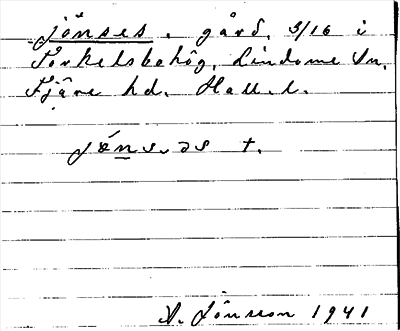 jönses, gård, 3/16 i
Torkelsbohög, Lindome sn.
Fjäre hd. Hall. l.
jö́ns.əs t.
A. Jönsson 1941